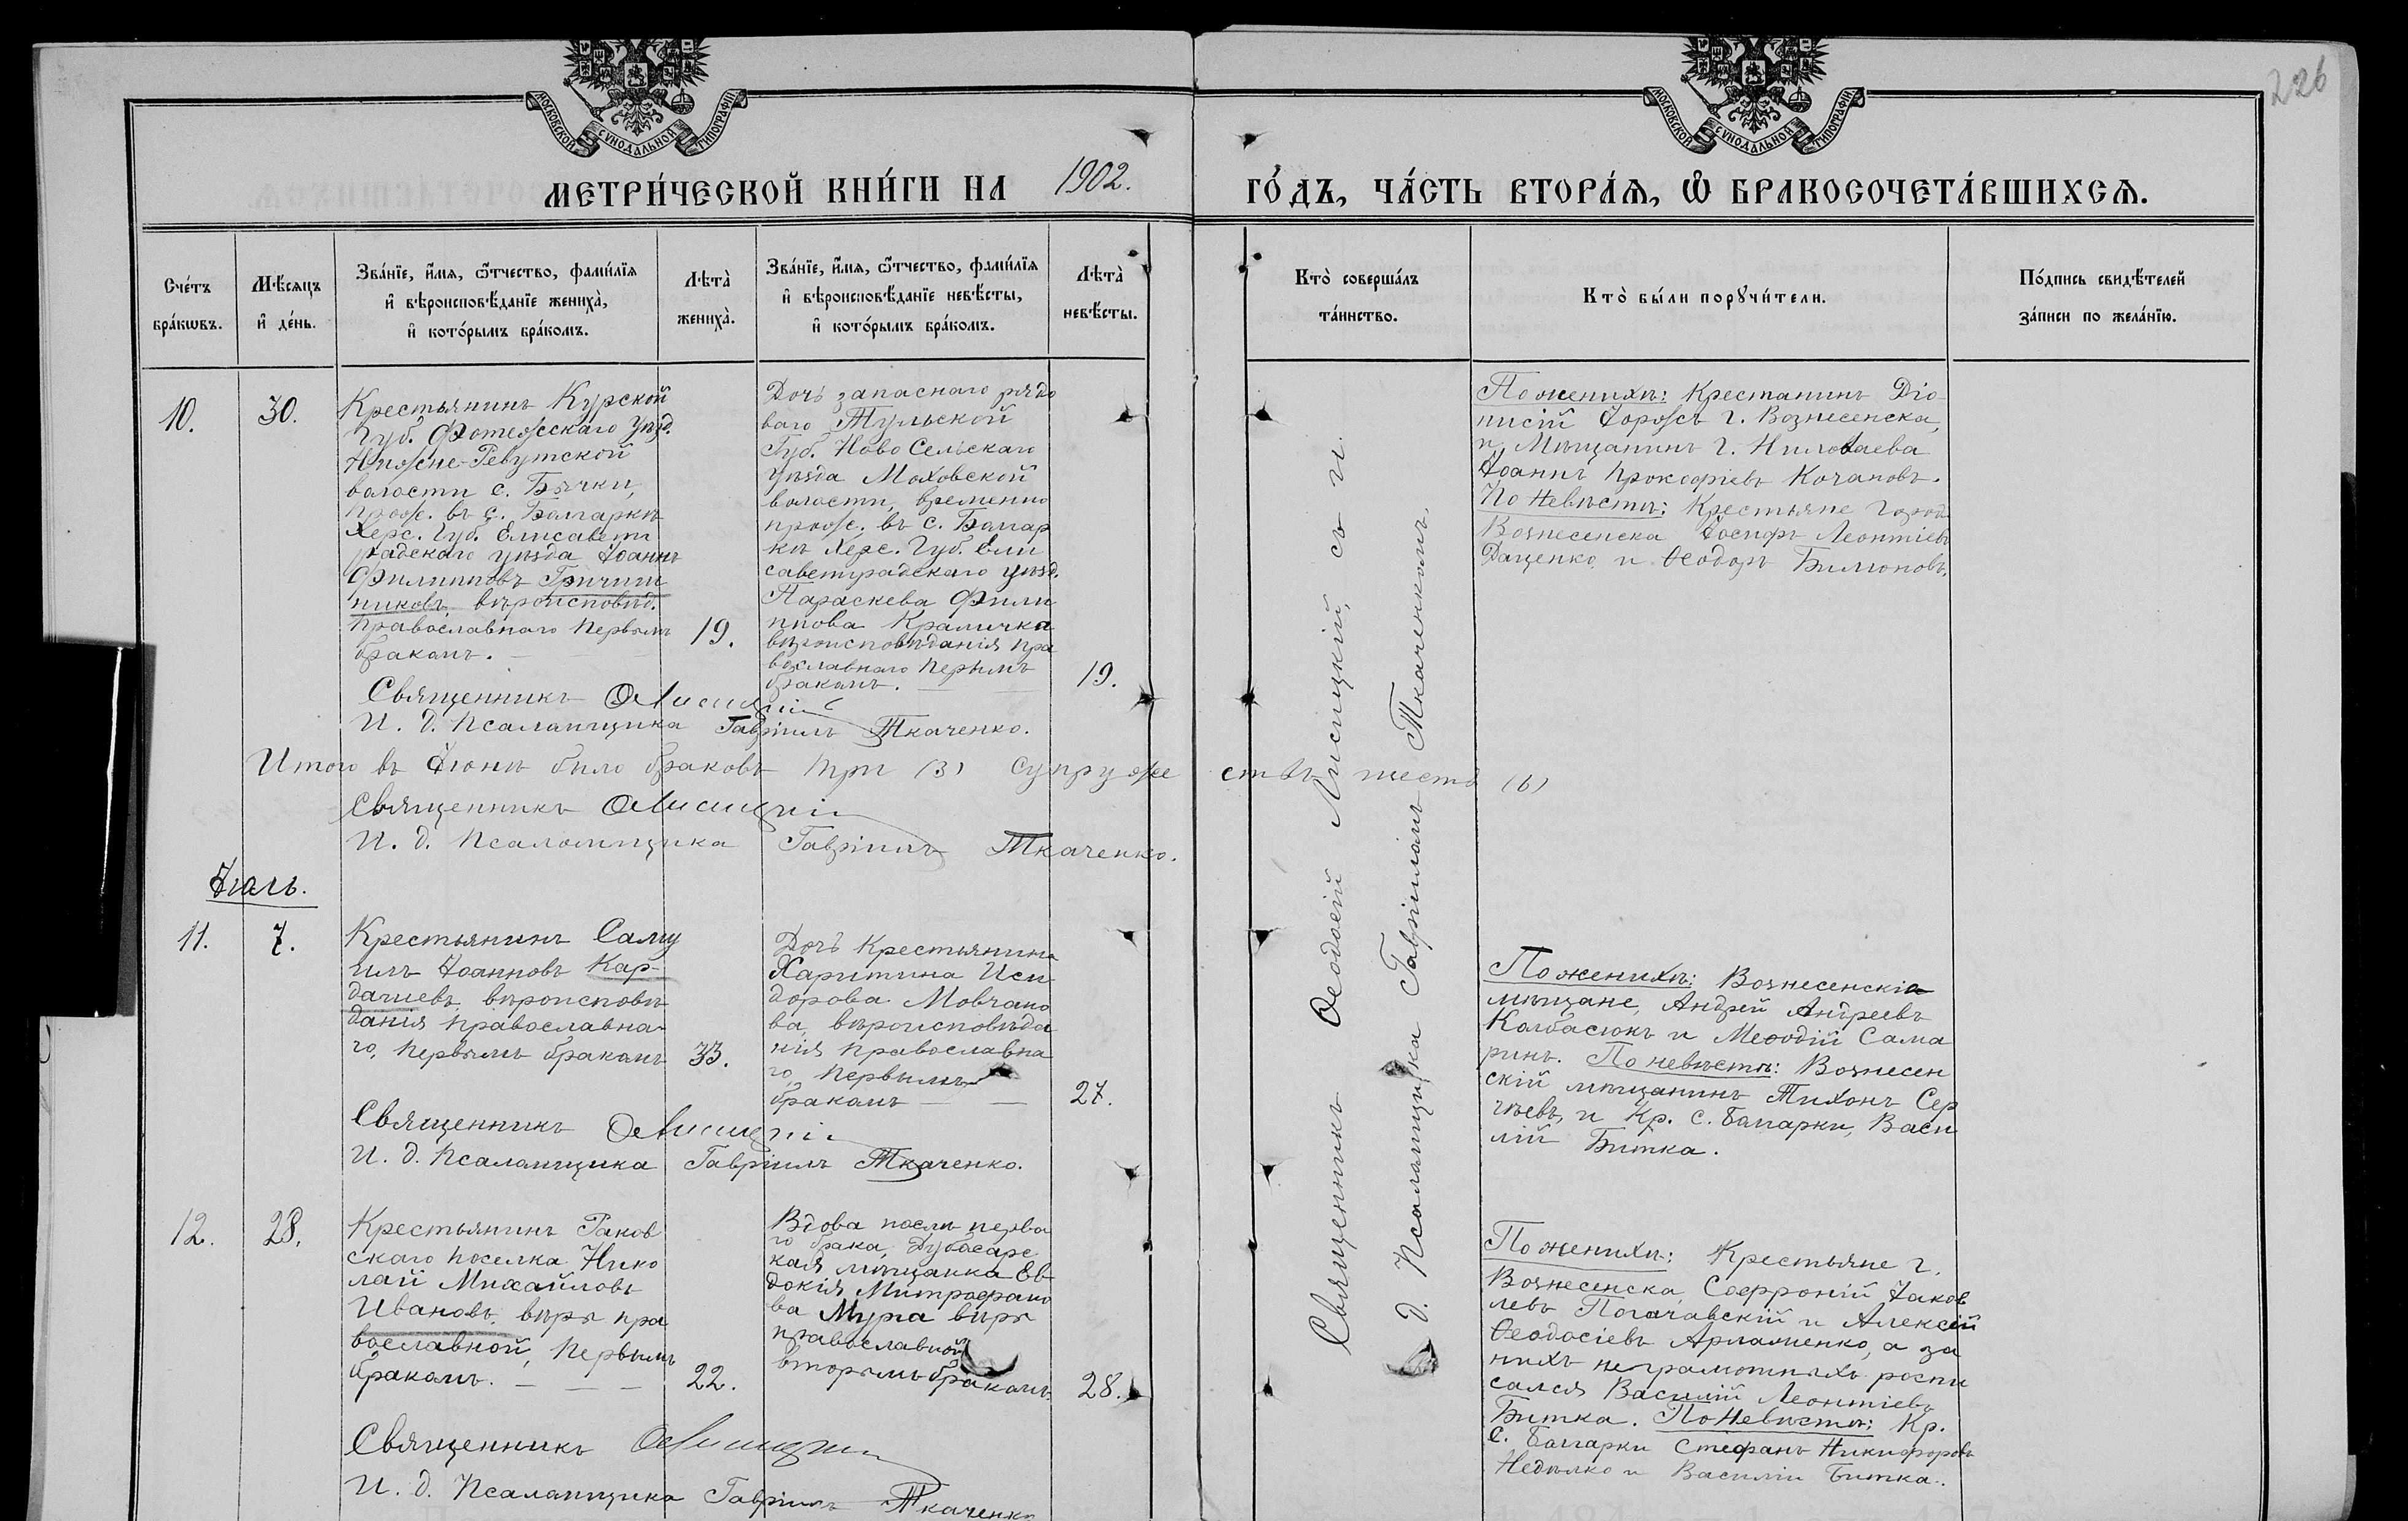 226
МОСКОВСКОЙ СѴНОДАЛЬНОЙ ТИПОГРАФІИ
МОСКОВСКОЙ СѴНОДАЛЬНОЙ ТИПОГРАФІИ
МЕТРИ́ЧЕСКОЙ КНИ́ГИ НА 1902. ГО́ДЪ, ЧА́СТЬ ВТОРА́Ѧ, Ѽ БРАКОСОЧЕТА́ВШИХСѦ.
Сче́тъ
бра́кѡвъ.
Мѣ́сяцъ
и҆ де́нь.
Зва́нїе, и҆́мя, ѻ҆́тчество, фами́лїя
и҆ вѣроисповѣ́данїе жениха̀,
и҆ кото́рымъ бра́комъ.
Лѣта̀
жениха̀.
Зва́нїе, и҆́мя, ѻ҆́тчество, фами́лїя
и҆ вѣроисповѣ́данїе невѣ́сты,
и҆ кото́рымъ бра́комъ.
Лѣта̀
невѣ́сты.
Кто̀ соверша́лъ
та́инство.
Кто̀ бы́ли порꙋчи́тели.
По́дпись свидѣ́телей
за́писи по жела́нїю.
10.
30.
Крестьянинъ Курской
Губ. Фотежсскаго Уѣзд.
Нижне-Ревутской
волости с. Бычки,
прож. въ с. Болгаркѣ
Херс. Губ. Елисавет
градскаго уѣзда Іоаннъ
Филипповъ Гричиш
никовъ, вѣроисповѣд.
православнаго первымъ
бракомъ.
19.
Дочь запаснаго рядо
ваго Тульской
Губ. Ново Сельскаго
уѣзда Моховской
волости, временно
прож. въ с. Болгар
кѣ Херс. Губ. Ели
саветградскаго уѣзд.
Параскева Фили
ппова Краличка
вѣроисповѣданія пра
вославнаго перымъ
бракомъ.
19.
По женихѣ: Крестанинъ Діо
нисій Горожъ г. Вознесенска,
и Мѣщанинъ г. Николаева
Іоаннъ Прокофіевъ Кочановъ.
По Невѣстѣ: Крестьяне город
Вознесенска Іосифъ Леонтіевъ
Даценко и Ѳеодоръ Билюновъ.
Священникъ Ѳ Лисицкій
И. д. Псаломщика Гавріилъ Ткаченко.
Итого въ Іюнѣ было браковъ три (3) супружествъ шесть (6)
Священникъ Ѳ Лисицкій
И. д. Псаломщика Гавріилъ Ткаченко.
Священникъ Ѳеодосій Лисицкій, съ и.
д. Псаломщика Гавріиломъ Ткаченкомъ.
Іюль.
11.
7.
Крестьянинъ Саму
илъ Іоанновъ Кар-
дашевъ, вѣроисповѣ
данія православна-
го, первымъ бракомъ
33.
Дочь Крестьянина
Харитина Иси
дорова Мовчано
ва, вѣроисповѣда
нія православна
го, первымъ
бракомъ
27.
По женихѣ: Вознесенскіа
мѣщане, Андрей Андреевъ
Колбасюкъ и Меѳодій Сама
ринъ. По невѣстѣ: Вознесен
скій мѣщанинъ Тихонъ Сер
гѣевъ, и Кр. с. Болгарки, Васи
лій Битка.
Священникъ Ѳ Лисицкій
И. д. Псаломщика Гавріилъ Ткаченко.
12.
28.
Крестьянинъ Раков
скаго поселка Нико
лай Михайловъ
Ивановъ, вѣры пра
вославной, первымъ
бракомъ.
22.
Вдова послѣ перва
го брака, Дубосарс
кая мѣщанка Ев
докія Митрофано
ва Мурга вѣры
православной
вторымъ бракомъ
28.
По женихѣ: Крестьяне г.
Вознесенска Софроній Іаков
левъ Погачавскій и Алексѣй
Ѳеодосіевъ Арламенко, а за
нихъ неграмотныхъ роспи
сался Василій Леонтіевъ
Битка. По Невѣстѣ: Кр.
с. Болгарки Стефанъ Никифоровъ
Недѣлко и Василіи Битка.
Священникъ Ѳ Лисицкій
И. д. Псаломщика Гавріилъ Ткаченко